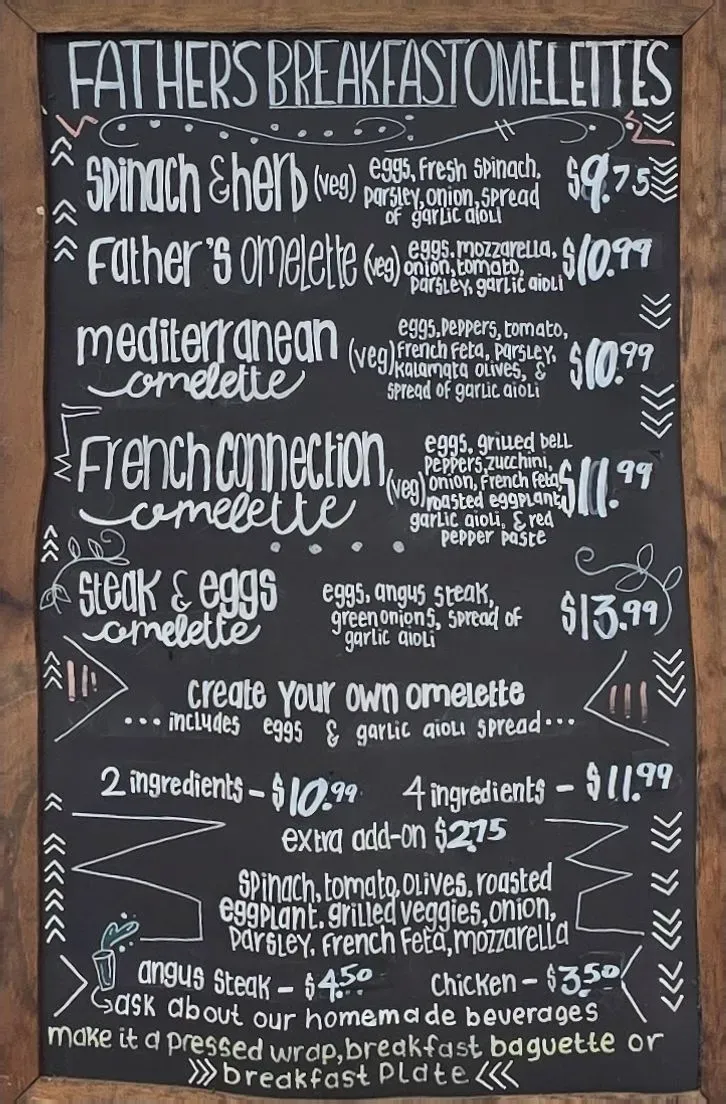 FATHER'S BREAKFAST OMELETTES
Spinach & herb (veg) eggs, fresh spinach, $9.75
parsley, onion, spread
of garlic aioli
Father's omelette (veg) eggs, mozzarella, $10.99
onion, tomato,
parsley, garlic aioli
mediterranean eggs, peppers, tomato,
omelette (veg) french feta, parsley, $10.99
kalamata olives, &
spread of garlic aioli
French connection eggs, grilled bell
omelette (veg) peppers, zucchini, $11.99
onion, french feta
roasted eggplant,
garlic aioli, & red
pepper paste
Steak & eggs eggs, angus steak,
omelette green onions, spread of $13.99
garlic aioli
create your own omelette
... includes eggs & garlic aioli spread...
2 ingredients - $10.99 4 ingredients - $11.99
extra add-on $2.75
spinach, tomato, olives, roasted
eggplant, grilled veggies, onion,
parsley, french feta, mozzarella
angus steak - $4.50 Chicken - $3.50
ask about our homemade beverages
make it a pressed wrap, breakfast baguette or
breakfast plate